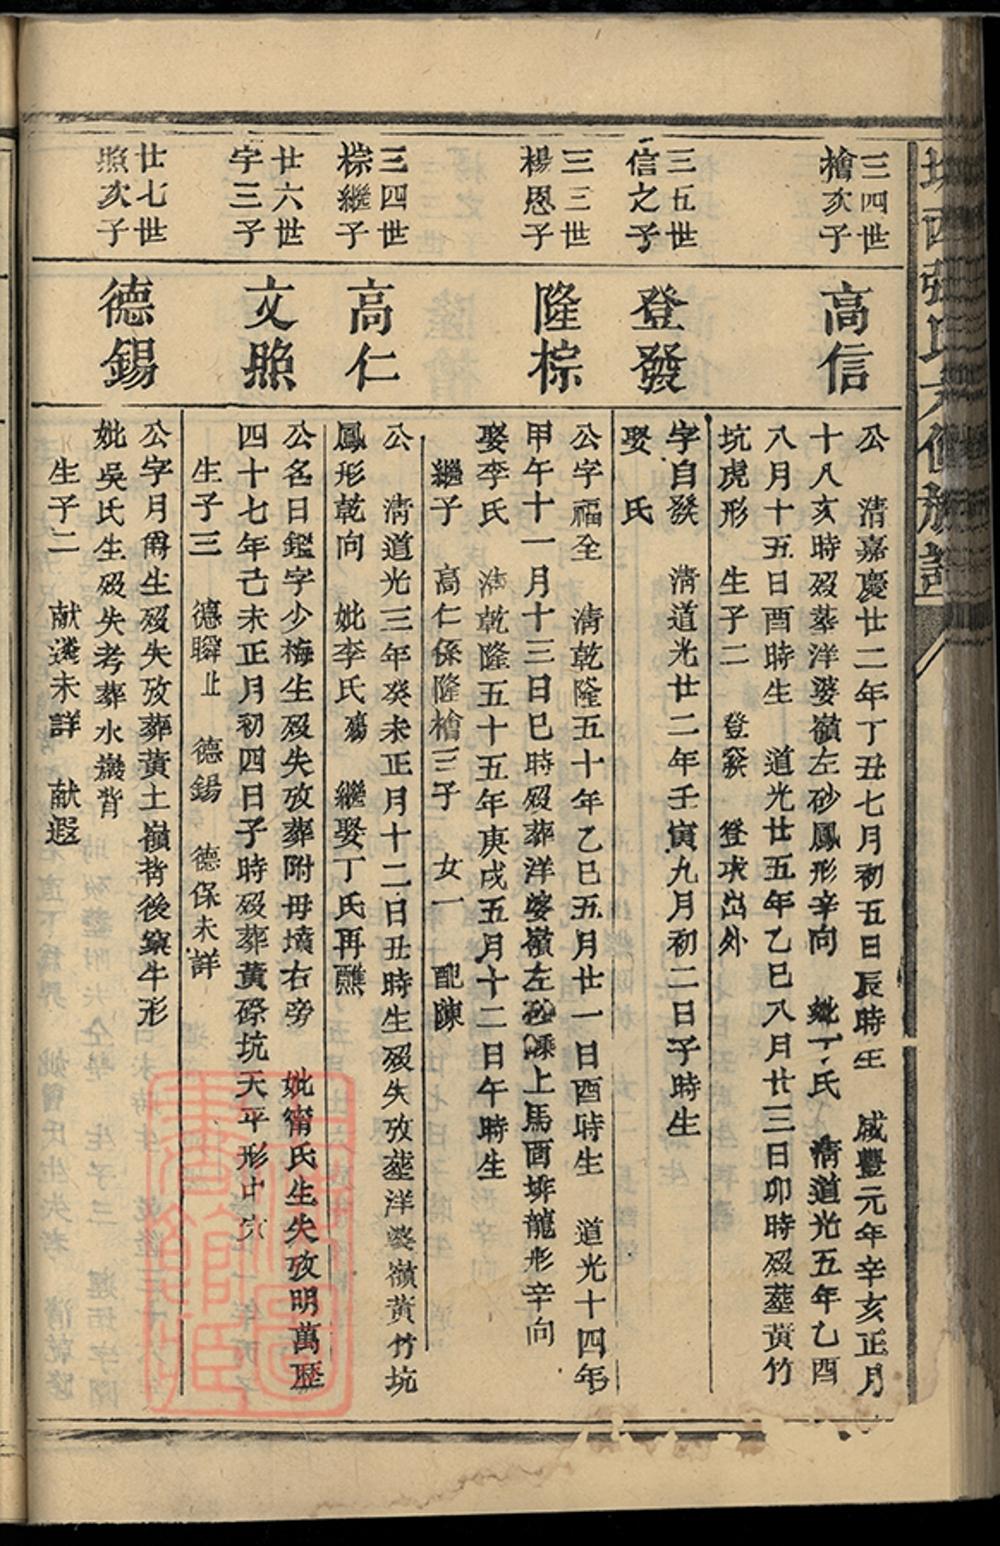 三四世
檜亥子
高信
公　清嘉慶廿二年丁丑七月初五日辰時生　咸豐元年辛亥正月
十八亥時歿塟洋婆嶺左砂鳳形辛向　妣丁氏　清道光五年乙酉
八月十五日酉時生　道光廿五年乙巳八月廿三日卯時歿塟黃竹
坑虎形　生子二　登發　登求出外
三五世
信之子
登發
字自發　清道光廿二年壬寅九月初二日子時生
娶　氏
三三世
楊恩子
隆棕
公字福全　清乾隆五十年乙巳五月廿一日酉時生　道光十四年
甲午十一月十三日巳時歿葬洋婆嶺左砂墂上馬酉堆龍形辛向
娶李氏　清乾隆五十五年庚戌五月十二日午時生
繼子　高仁係隆檜三子　女一　配陳
三四世
棕繼子
高仁
公　清道光三年癸未正月十二日丑時生歿失攷塟洋婆嶺黃竹坑
鳳形乾向　妣李氏殤　繼娶丁氏再醮
廿六世
字三子
文照
公名日鑑字少梅生歿失攷葬附毋墳右旁　妣甯氏生失攷明萬歷
四十七年己未正月初四日子時歿葬黃磜坑天平形中穴
生子三　德瞬止　德錫　德保未詳
廿七世
照亥子
德錫
公字月爵生歿失攷葬黃土嶺背後窠牛形
妣吳氏生歿失考葬水㘭背
生子二　献遴未詳　献遐